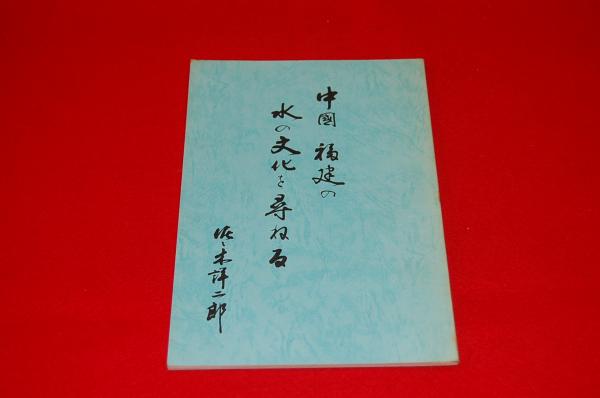 中國 福建の
水の文化を尋ねる
佐々木詳二郎